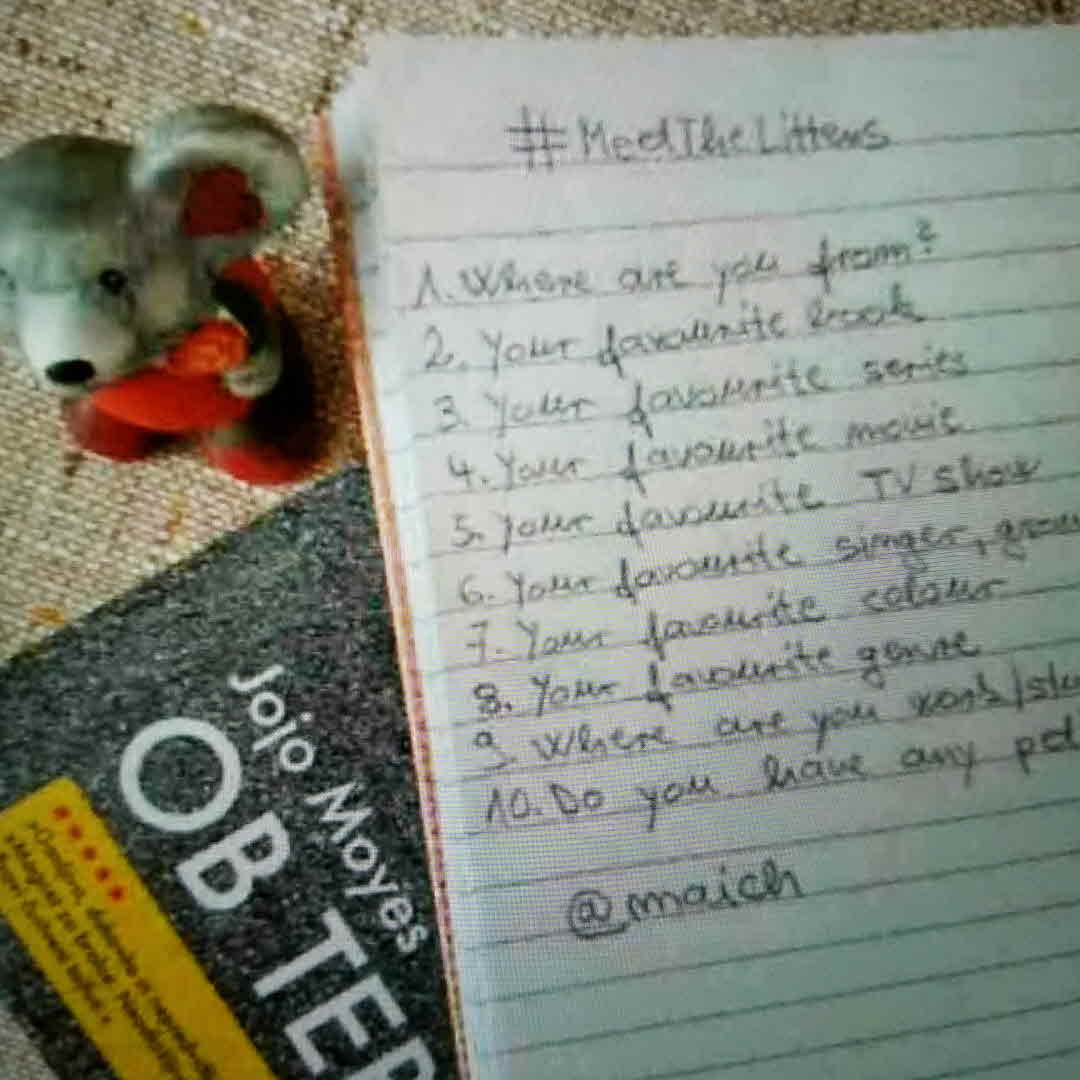 #MeetTheLittens
1. Where are you from?
2. Your favourite book
3. Your favourite series
4. Your favourite movie
5. Your favourite TV show
6. Your favourite singer, grou
7. Your favourite colour
8. Your favourite genre
9. Where are you work/stu
10. Do you have any pet
@maich
Jojo Moyes
OB TEB